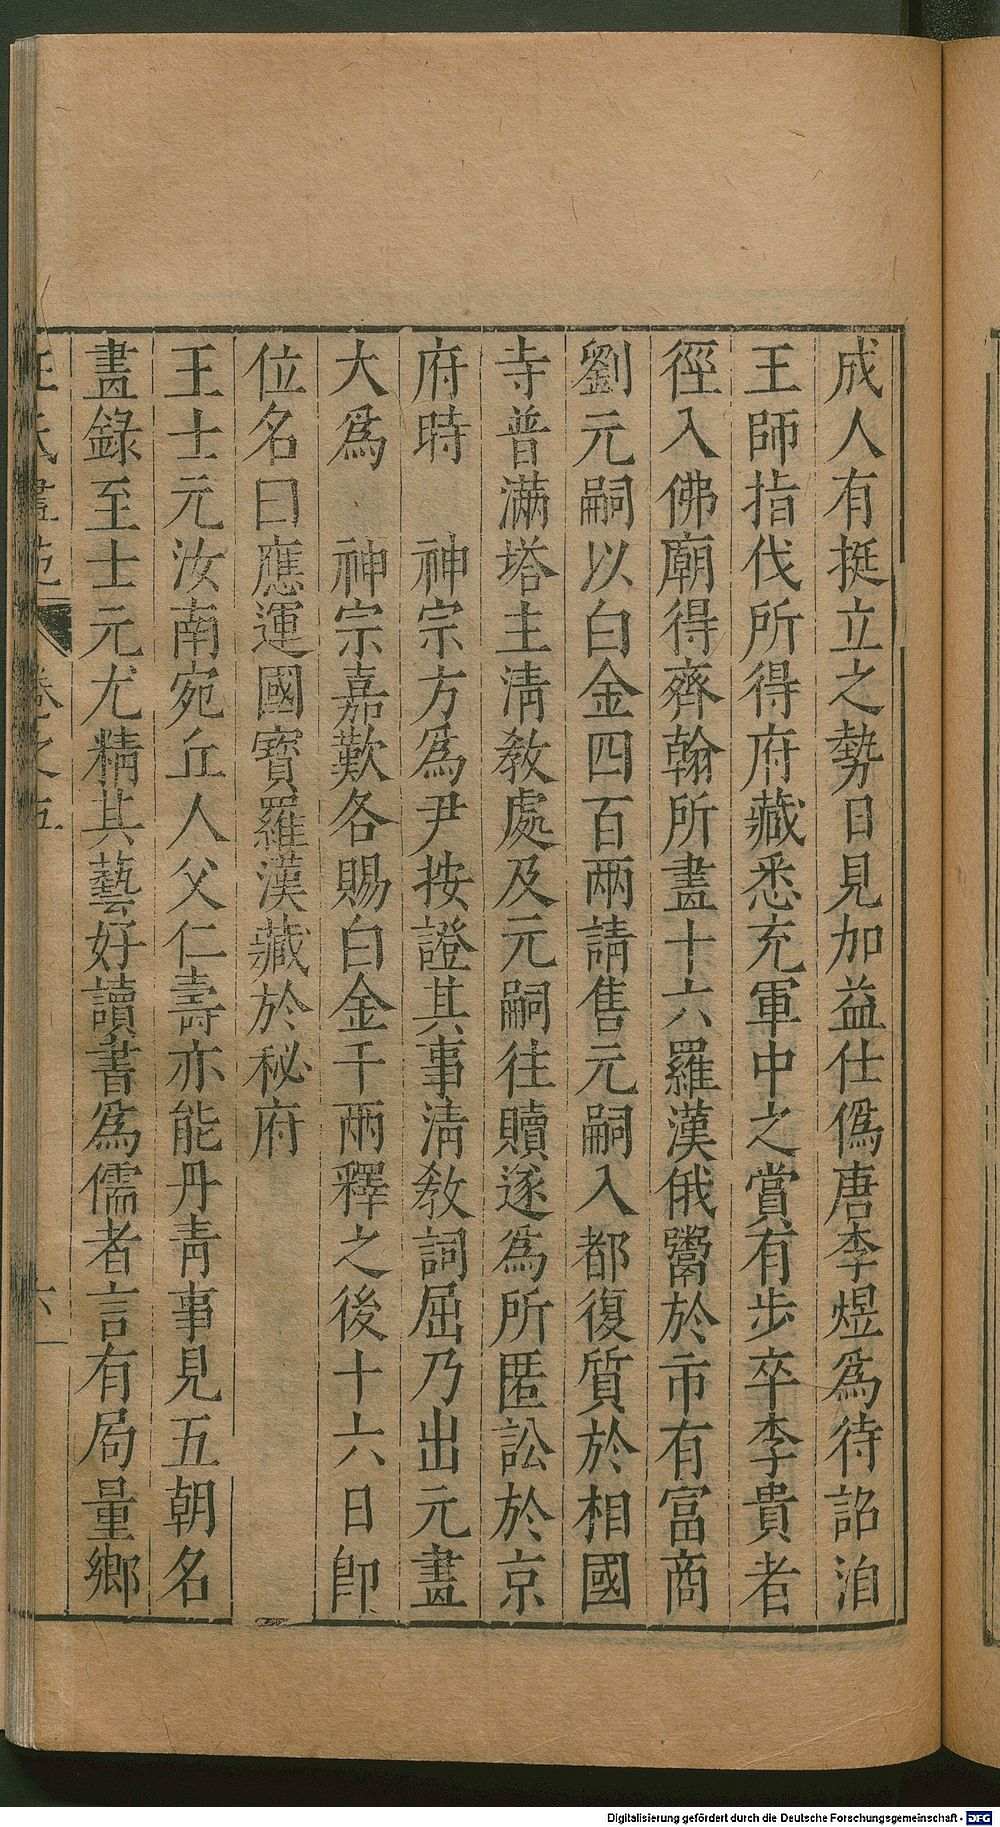 成人有挺立之勢日見加益仕僞唐李煜爲待詔洎
王師指伐所得府藏悉充軍中之賞有步卒李貴者
徑入佛廟得齊翰所畫十六羅漢俄鬻於市有富商
劉元嗣以白金四百兩請售元嗣入都復質於相國
寺普滿塔主淸敎處及元嗣往贖遂爲所匿訟於京
府時 神宗方爲尹按證其事淸敎詞屈乃出元畫
大爲 神宗嘉歎各賜白金千兩釋之後十六日卽
位名曰應運國寶羅漢藏於秘府
王士元汝南宛丘人父仁壽亦能丹靑事見五朝名
畫錄至士元尤精其藝好讀書爲儒者言有局量鄉
王氏畫苑 卷之五 六
Digitalisierung gefördert durch die Deutsche Forschungsgemeinschaft - DFG